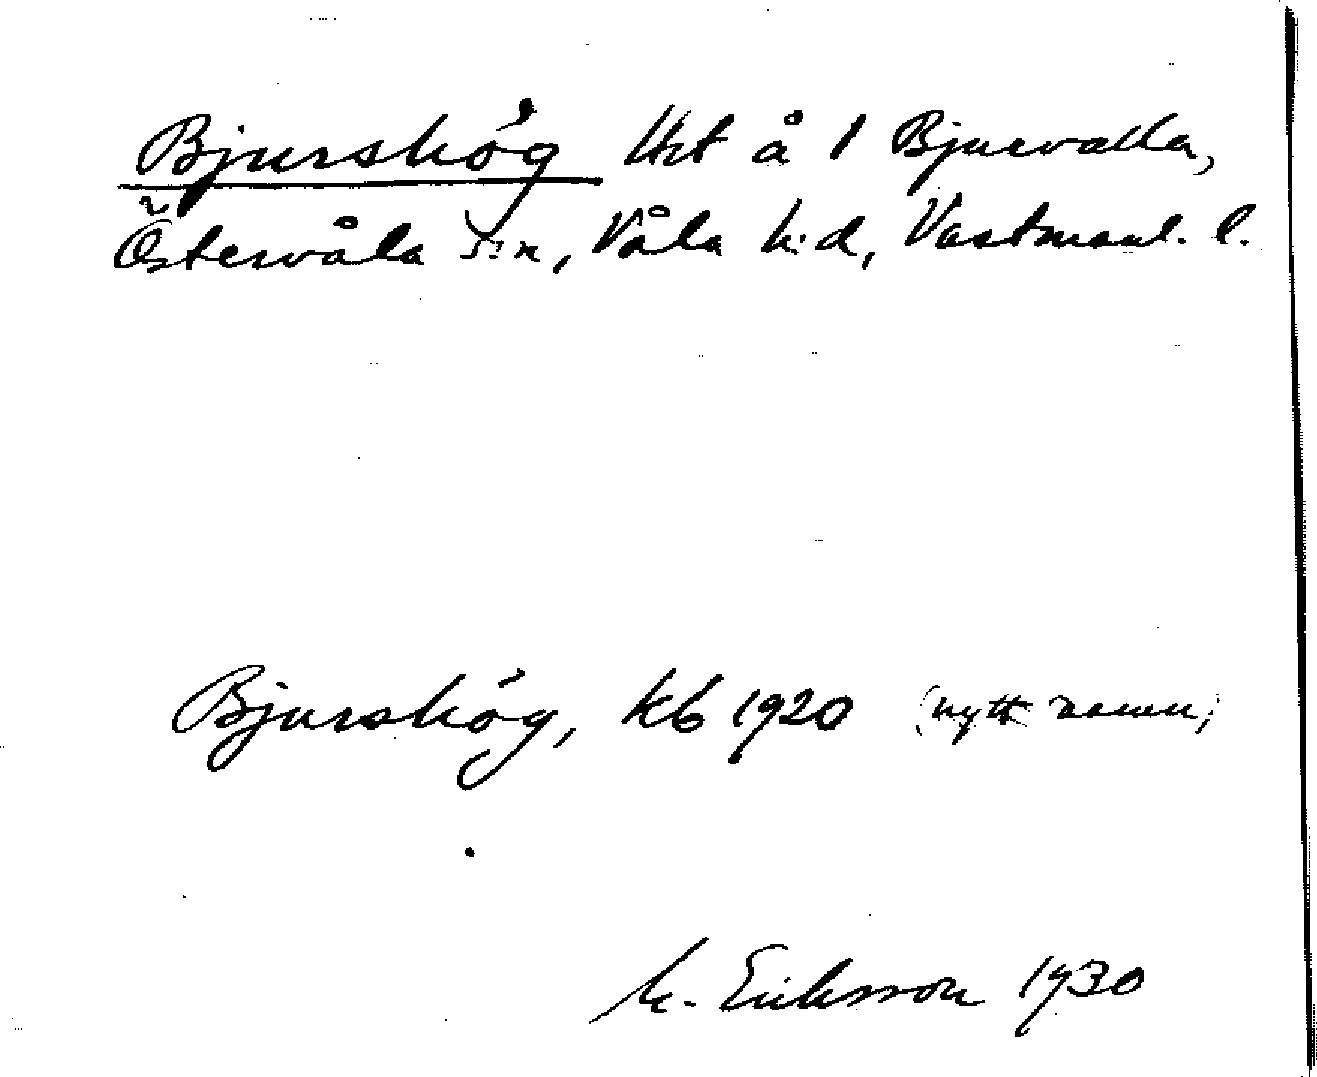 Bjurshög lht å 1 Bjurvalla,
Östervåla s:n, Våla h:d, Västmanl. l.
Bjurshög, kb 1920 (nytt namn)
M. Eriksson 1930